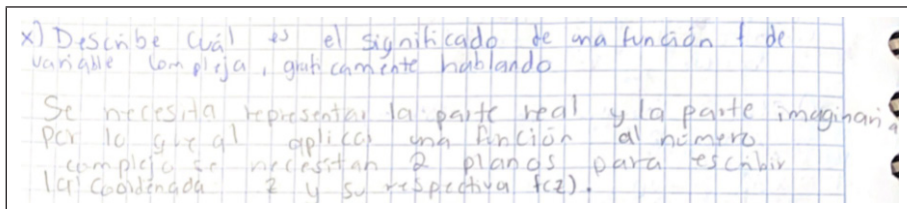 x) Describe cuál es el significado de una función f de
variable compleja, graficamente hablando
Se necesita representar la parte real y la parte imaginaria
Por lo que al aplicar una función al número
complejo se necesitan 2 planos para escribir
la coordenada z y su respectiva f(z).